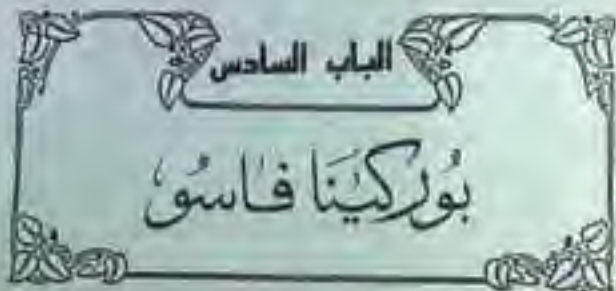 الباب السادس
بُوركيَنَا فَاسُو